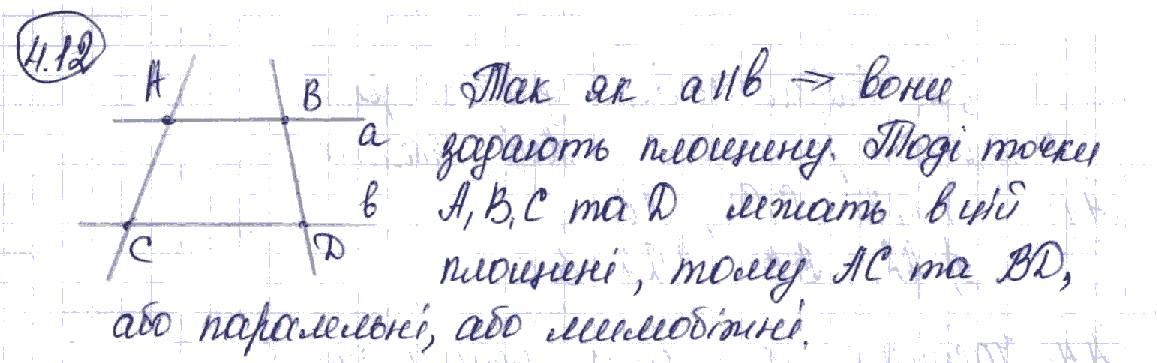 4.12
A
B
a
в
C
D
Так як a || в => вони
задають площину. Тоді точки
A, B, C та D лежать в цій
площині, тому AC та BD,
або паралельні, або мимобіжні.